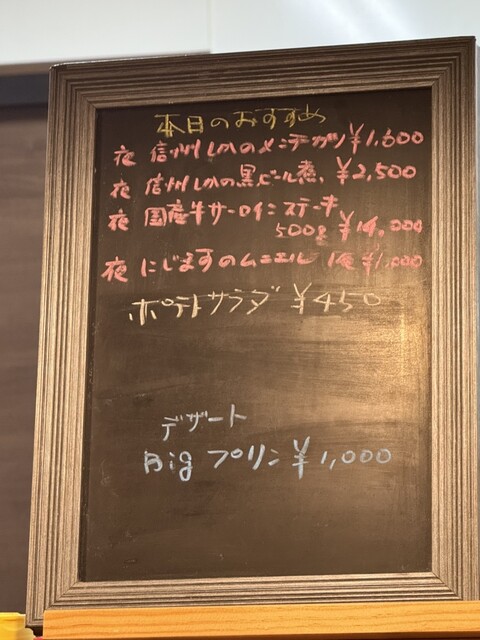 本日のおすすめ
夜 信州しかのメンチカツ ¥1,600
夜 信州しかの黒ビール煮 ¥2,500
夜 国産牛サーロインステーキ
500g ¥14,000
夜 にじますのムニエル ¥1,000
ポテトサラダ ¥450
デザート
Big プリン ¥1,000